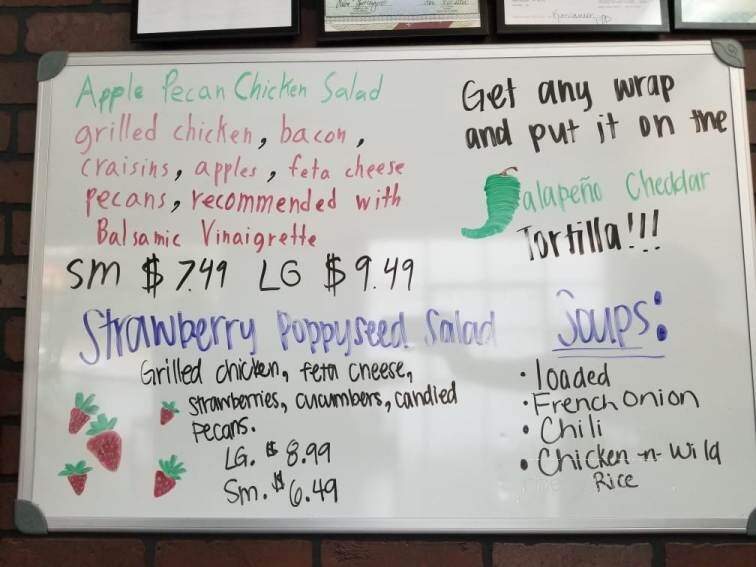 Apple Pecan Chicken Salad
grilled chicken, bacon,
craisins, apples, feta cheese
pecans, recommended with
Balsamic Vinaigrette
SM $7.49 LG $9.49
Strawberry Poppyseed Salad
Grilled chicken, feta cheese,
strawberries, cucumbers, candied
pecans.
LG. $8.99
Sm. $6.49
Get any wrap
and put it on the
Jalapeño Cheddar
Tortilla!!!
Soups:
• loaded
• French Onion
• Chili
• Chicken -n- Wild
Rice